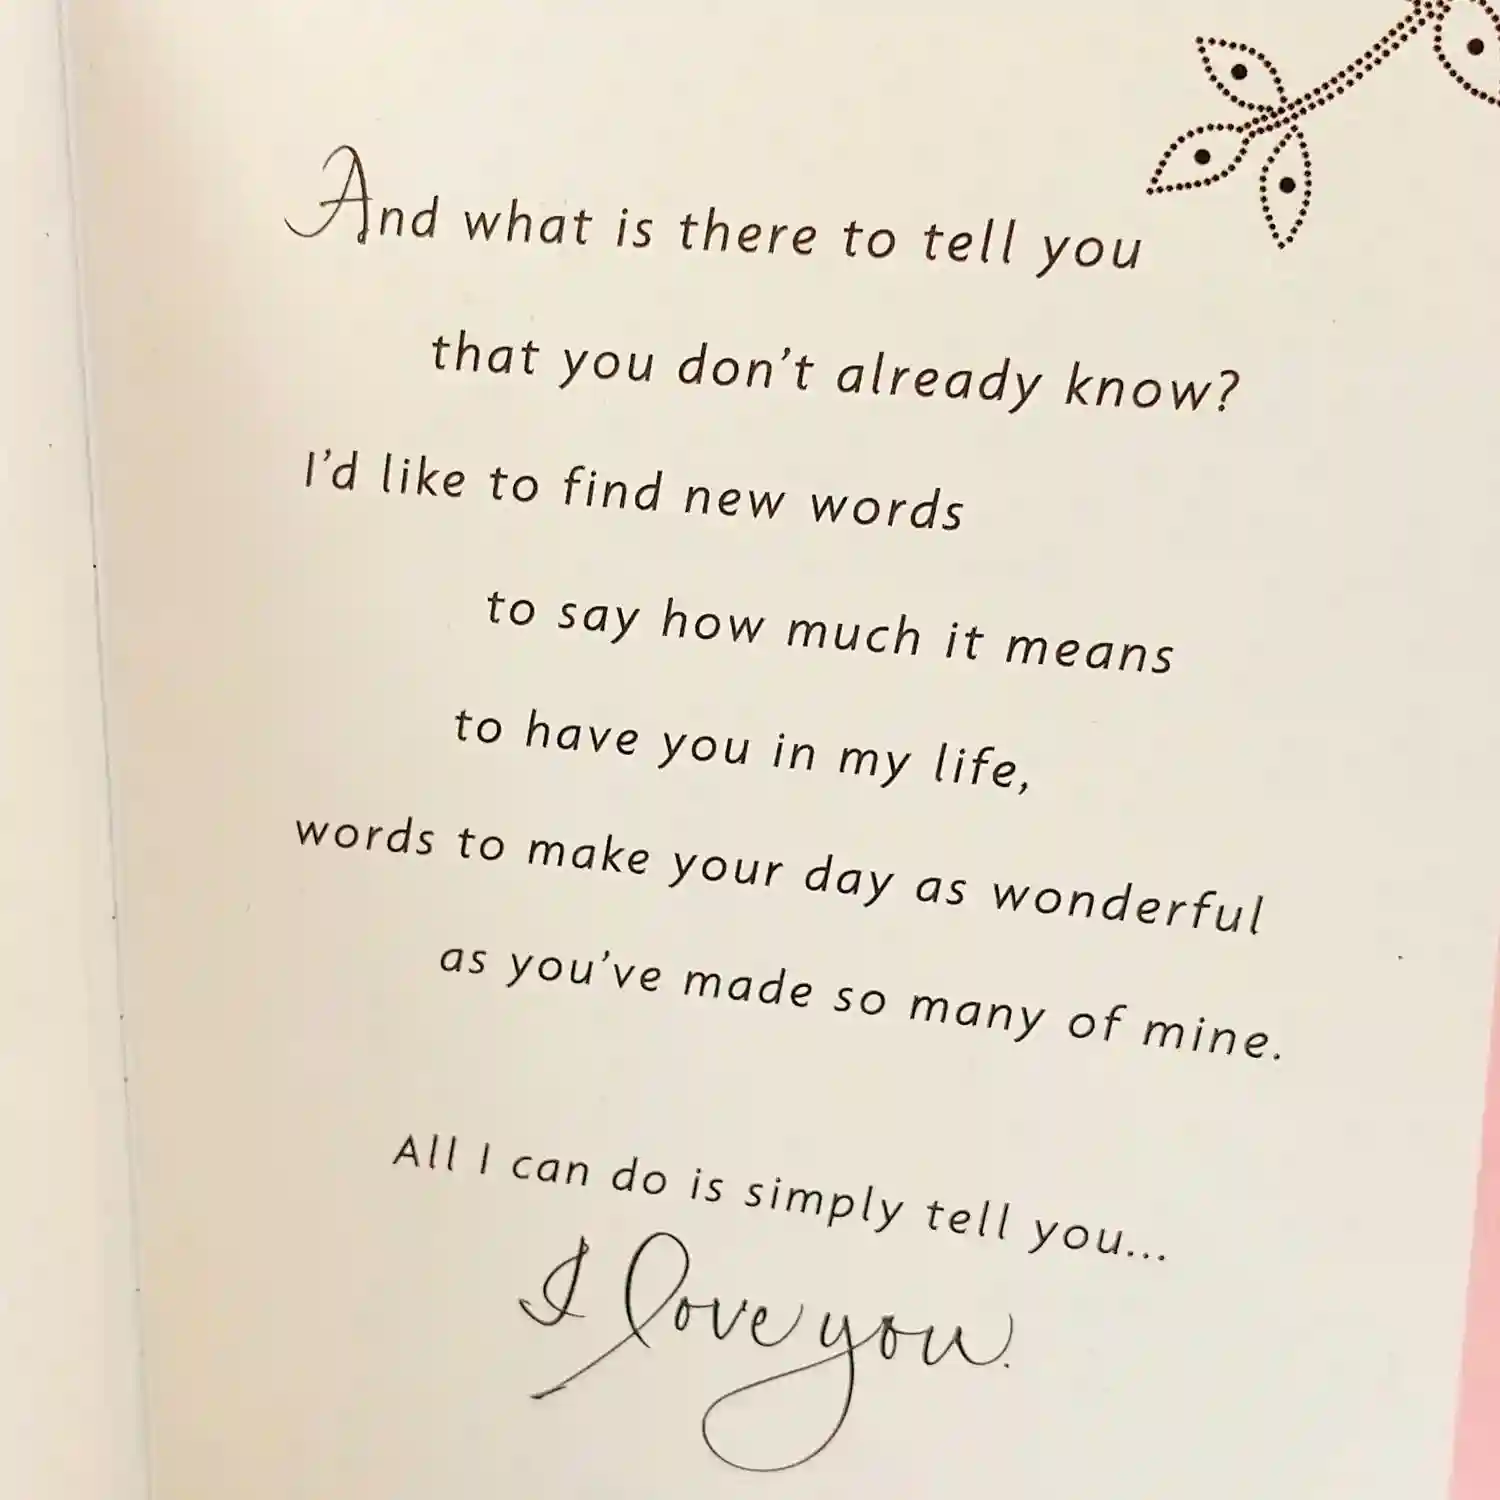 And what is there to tell you
that you don't already know?
I'd like to find new words
to say how much it means
to have you in my life,
words to make your day as wonderful
as you've made so many of mine.
All I can do is simply tell you...
I love you.